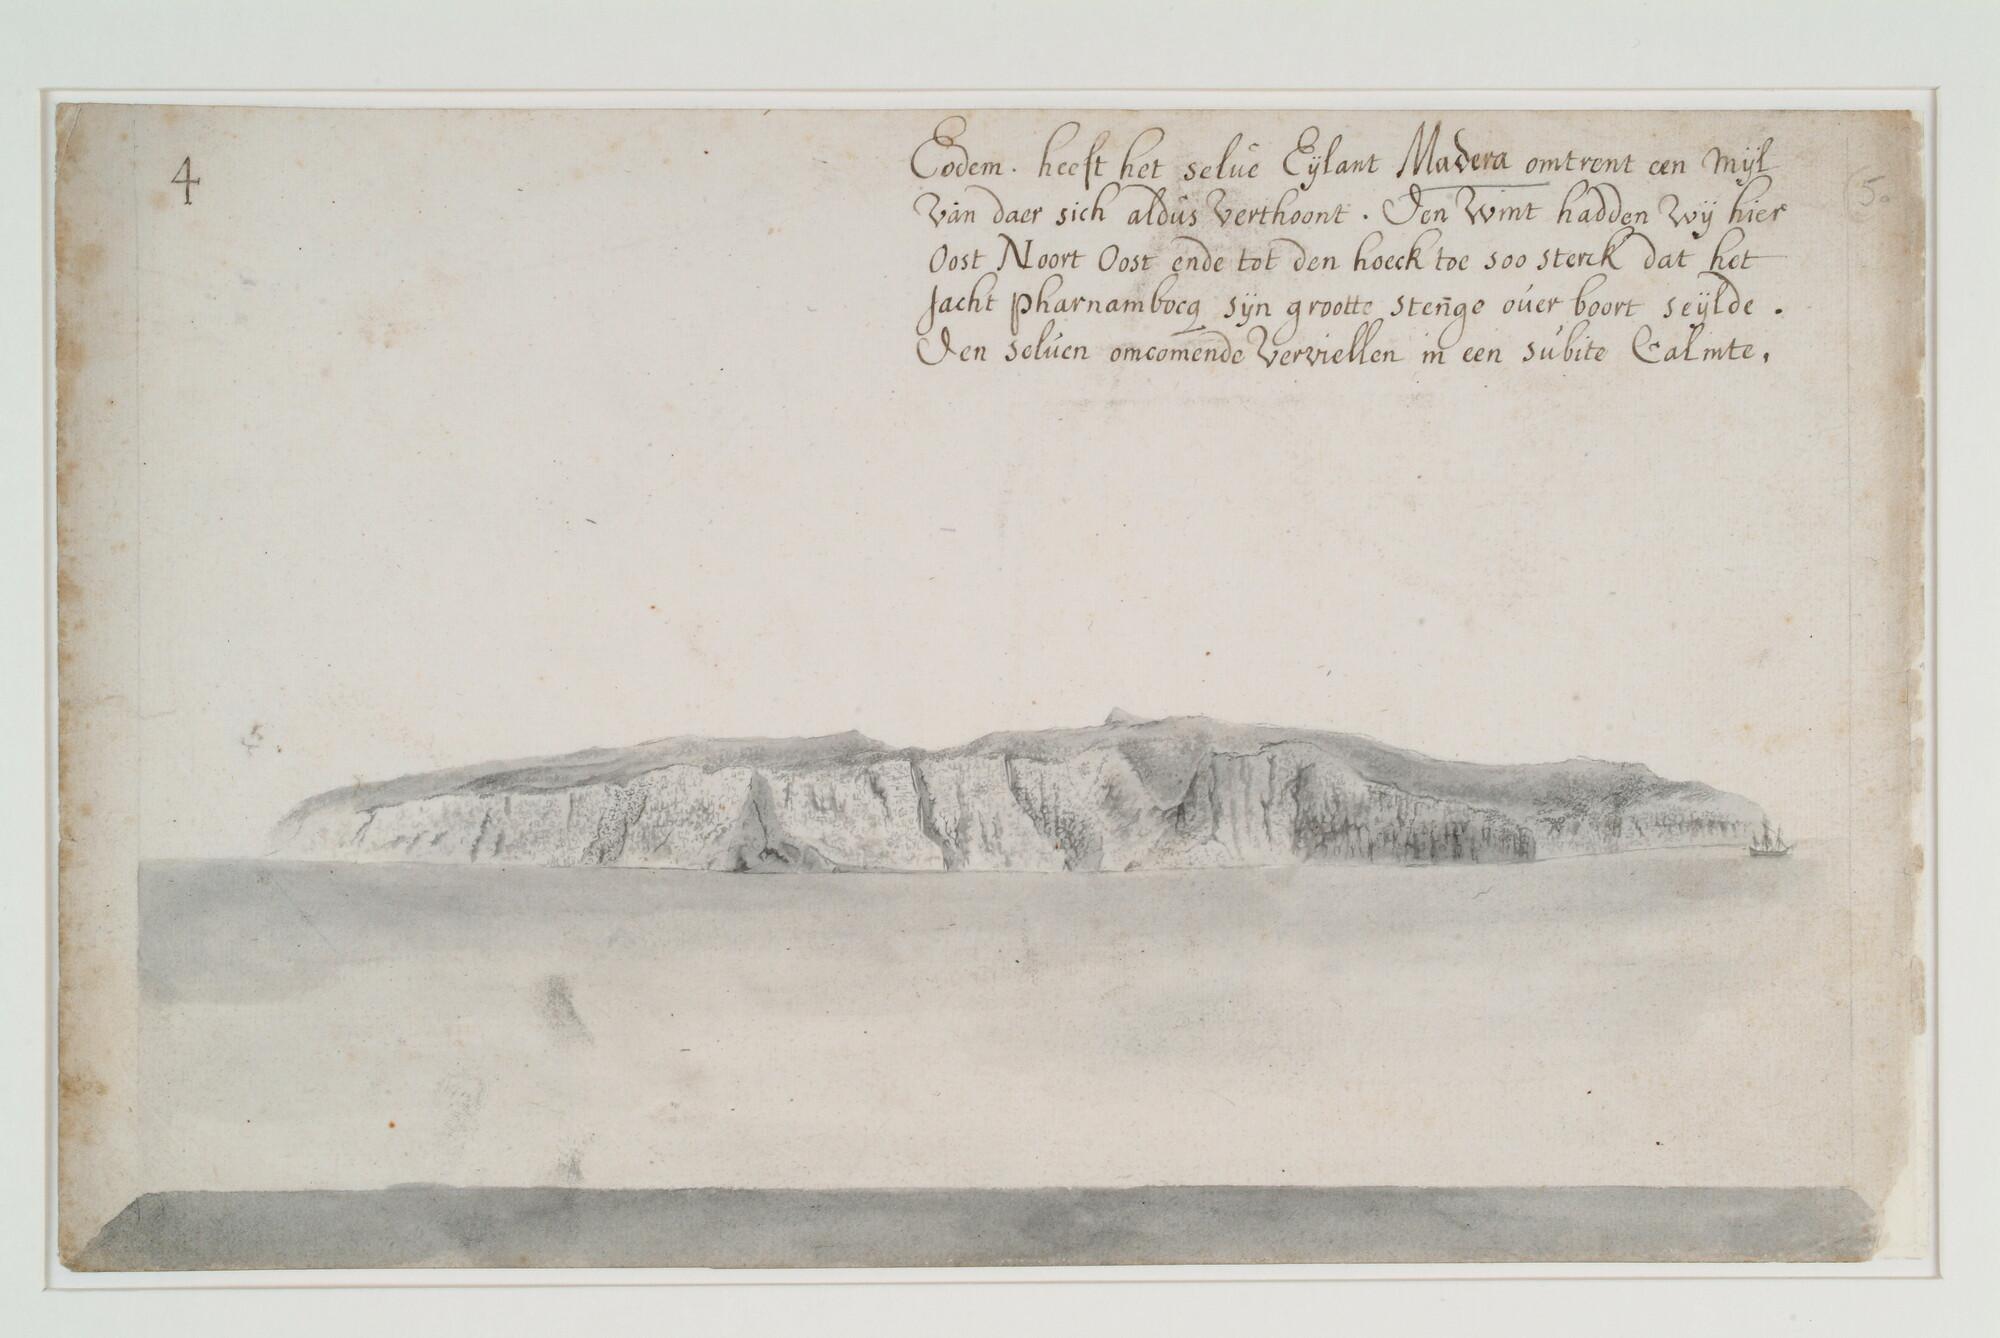 4
Eodem. heeft het selúe Eÿlant Madera omtrent een mÿl
Van daer sich aldús verthoont. Den Wint hadden Wÿ hier
Oost Noort Oost ende tot den hoeck toe soo sterck dat het
Jacht Pharnambocq sÿn grootte stenge oúer boort seÿlde.
Den selúen omcomende Verviellen in een súbite Calmte,
5.